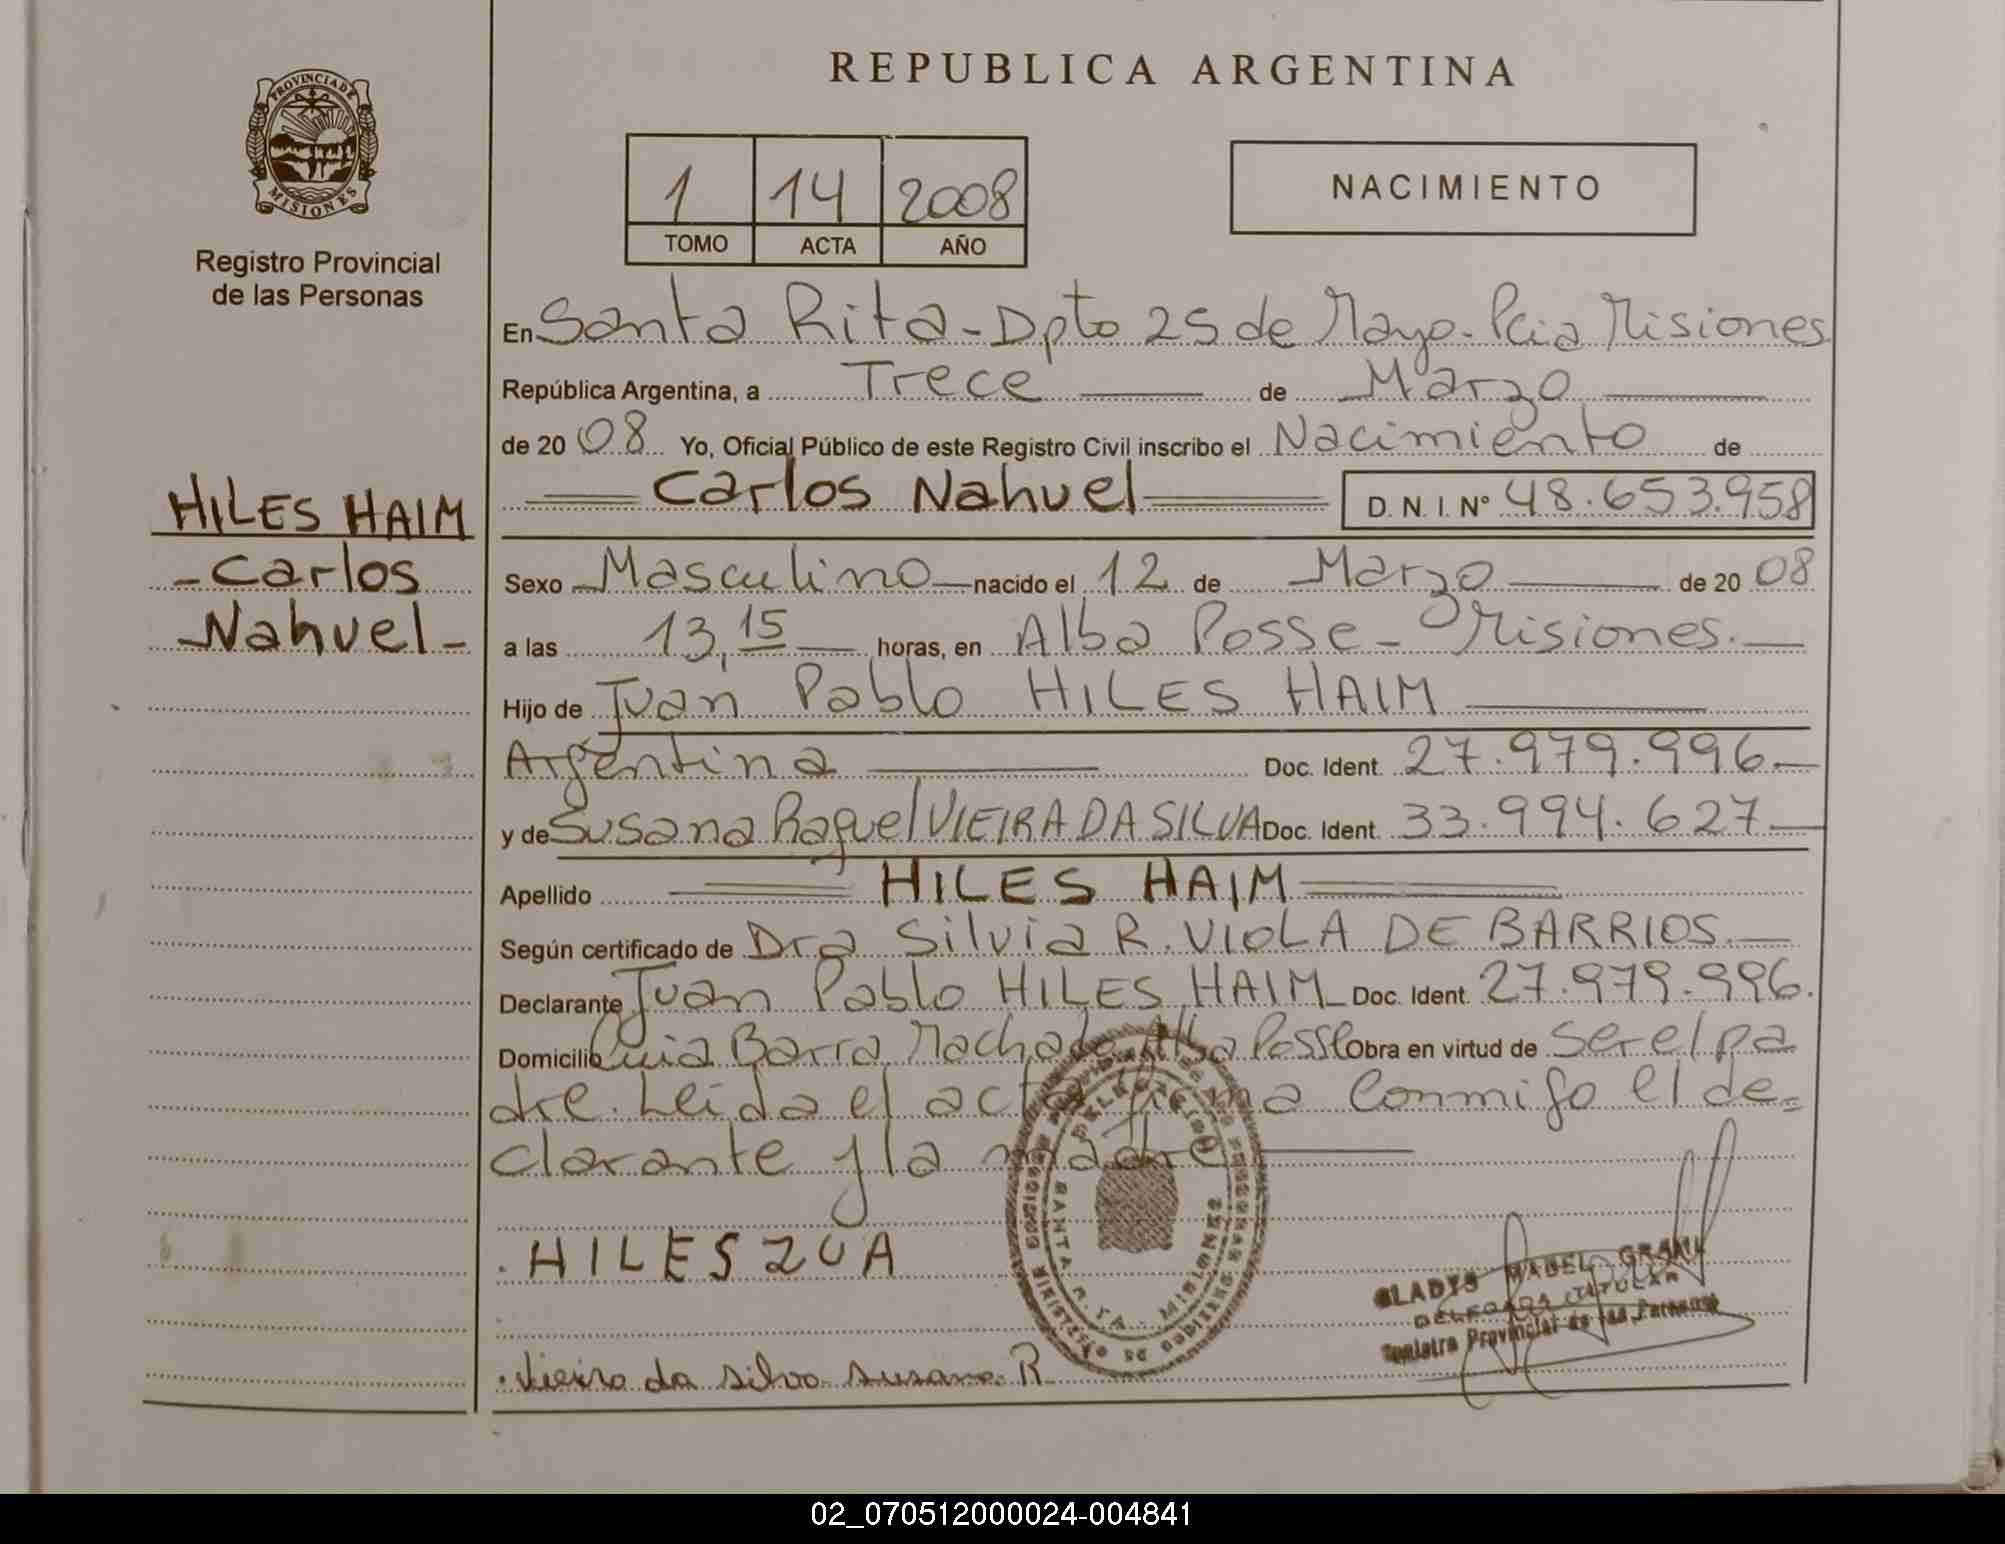 REPUBLICA ARGENTINA
PROVINCIA DE
MISIONES
Registro Provincial
de las Personas
1 14 2008
TOMO ACTA AÑO
NACIMIENTO
En Santa Rita - Dpto 25 de Mayo - Pcia Misiones
República Argentina, a Trece de Marzo
de 2008 Yo, Oficial Público de este Registro Civil inscribo el Nacimiento de
Carlos Nahuel D. N. I. Nº 48.653.958
HILES HAIM
- Carlos
Nahuel -
Sexo Masculino nacido el 12 de Marzo de 2008
a las 13,15 horas, en Alba Posse - Misiones.
Hijo de Juan Pablo HILES HAIM
Argentina Doc. Ident. 27.979.996.
y de Susana Raquel VIEIRA DA SILVA Doc. Ident. 33.994.627
Apellido HILES HAIM
Según certificado de Dra Silvia R. VIOLA DE BARRIOS.
Declarante Juan Pablo HILES HAIM Doc. Ident. 27.979.996.
Domicilio Barra Machado Alba Posse Obra en virtud de ser el pa
dre. Leida el acta firma Conmigo el de=
clarante y la madre
HILES ZUA
Vieira da silva susana. R
GLADYS MABEL
DELEGADA TITULAR
Registro Provincial de las Personas
SANTA
MISIONES
02_070512000024-004841